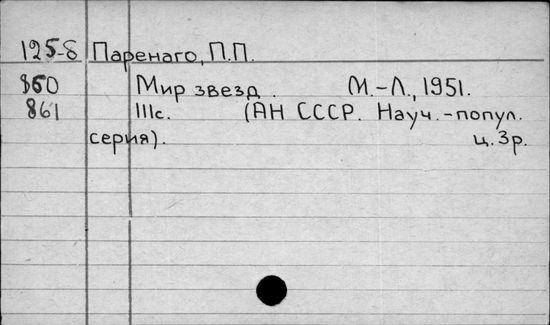 125-8 Паренаго, П.П.
860 Мир звезд. М.-Л., 1951.
861 111с. (АН СССР. Науч.-попул.
серия). ц. 3р.